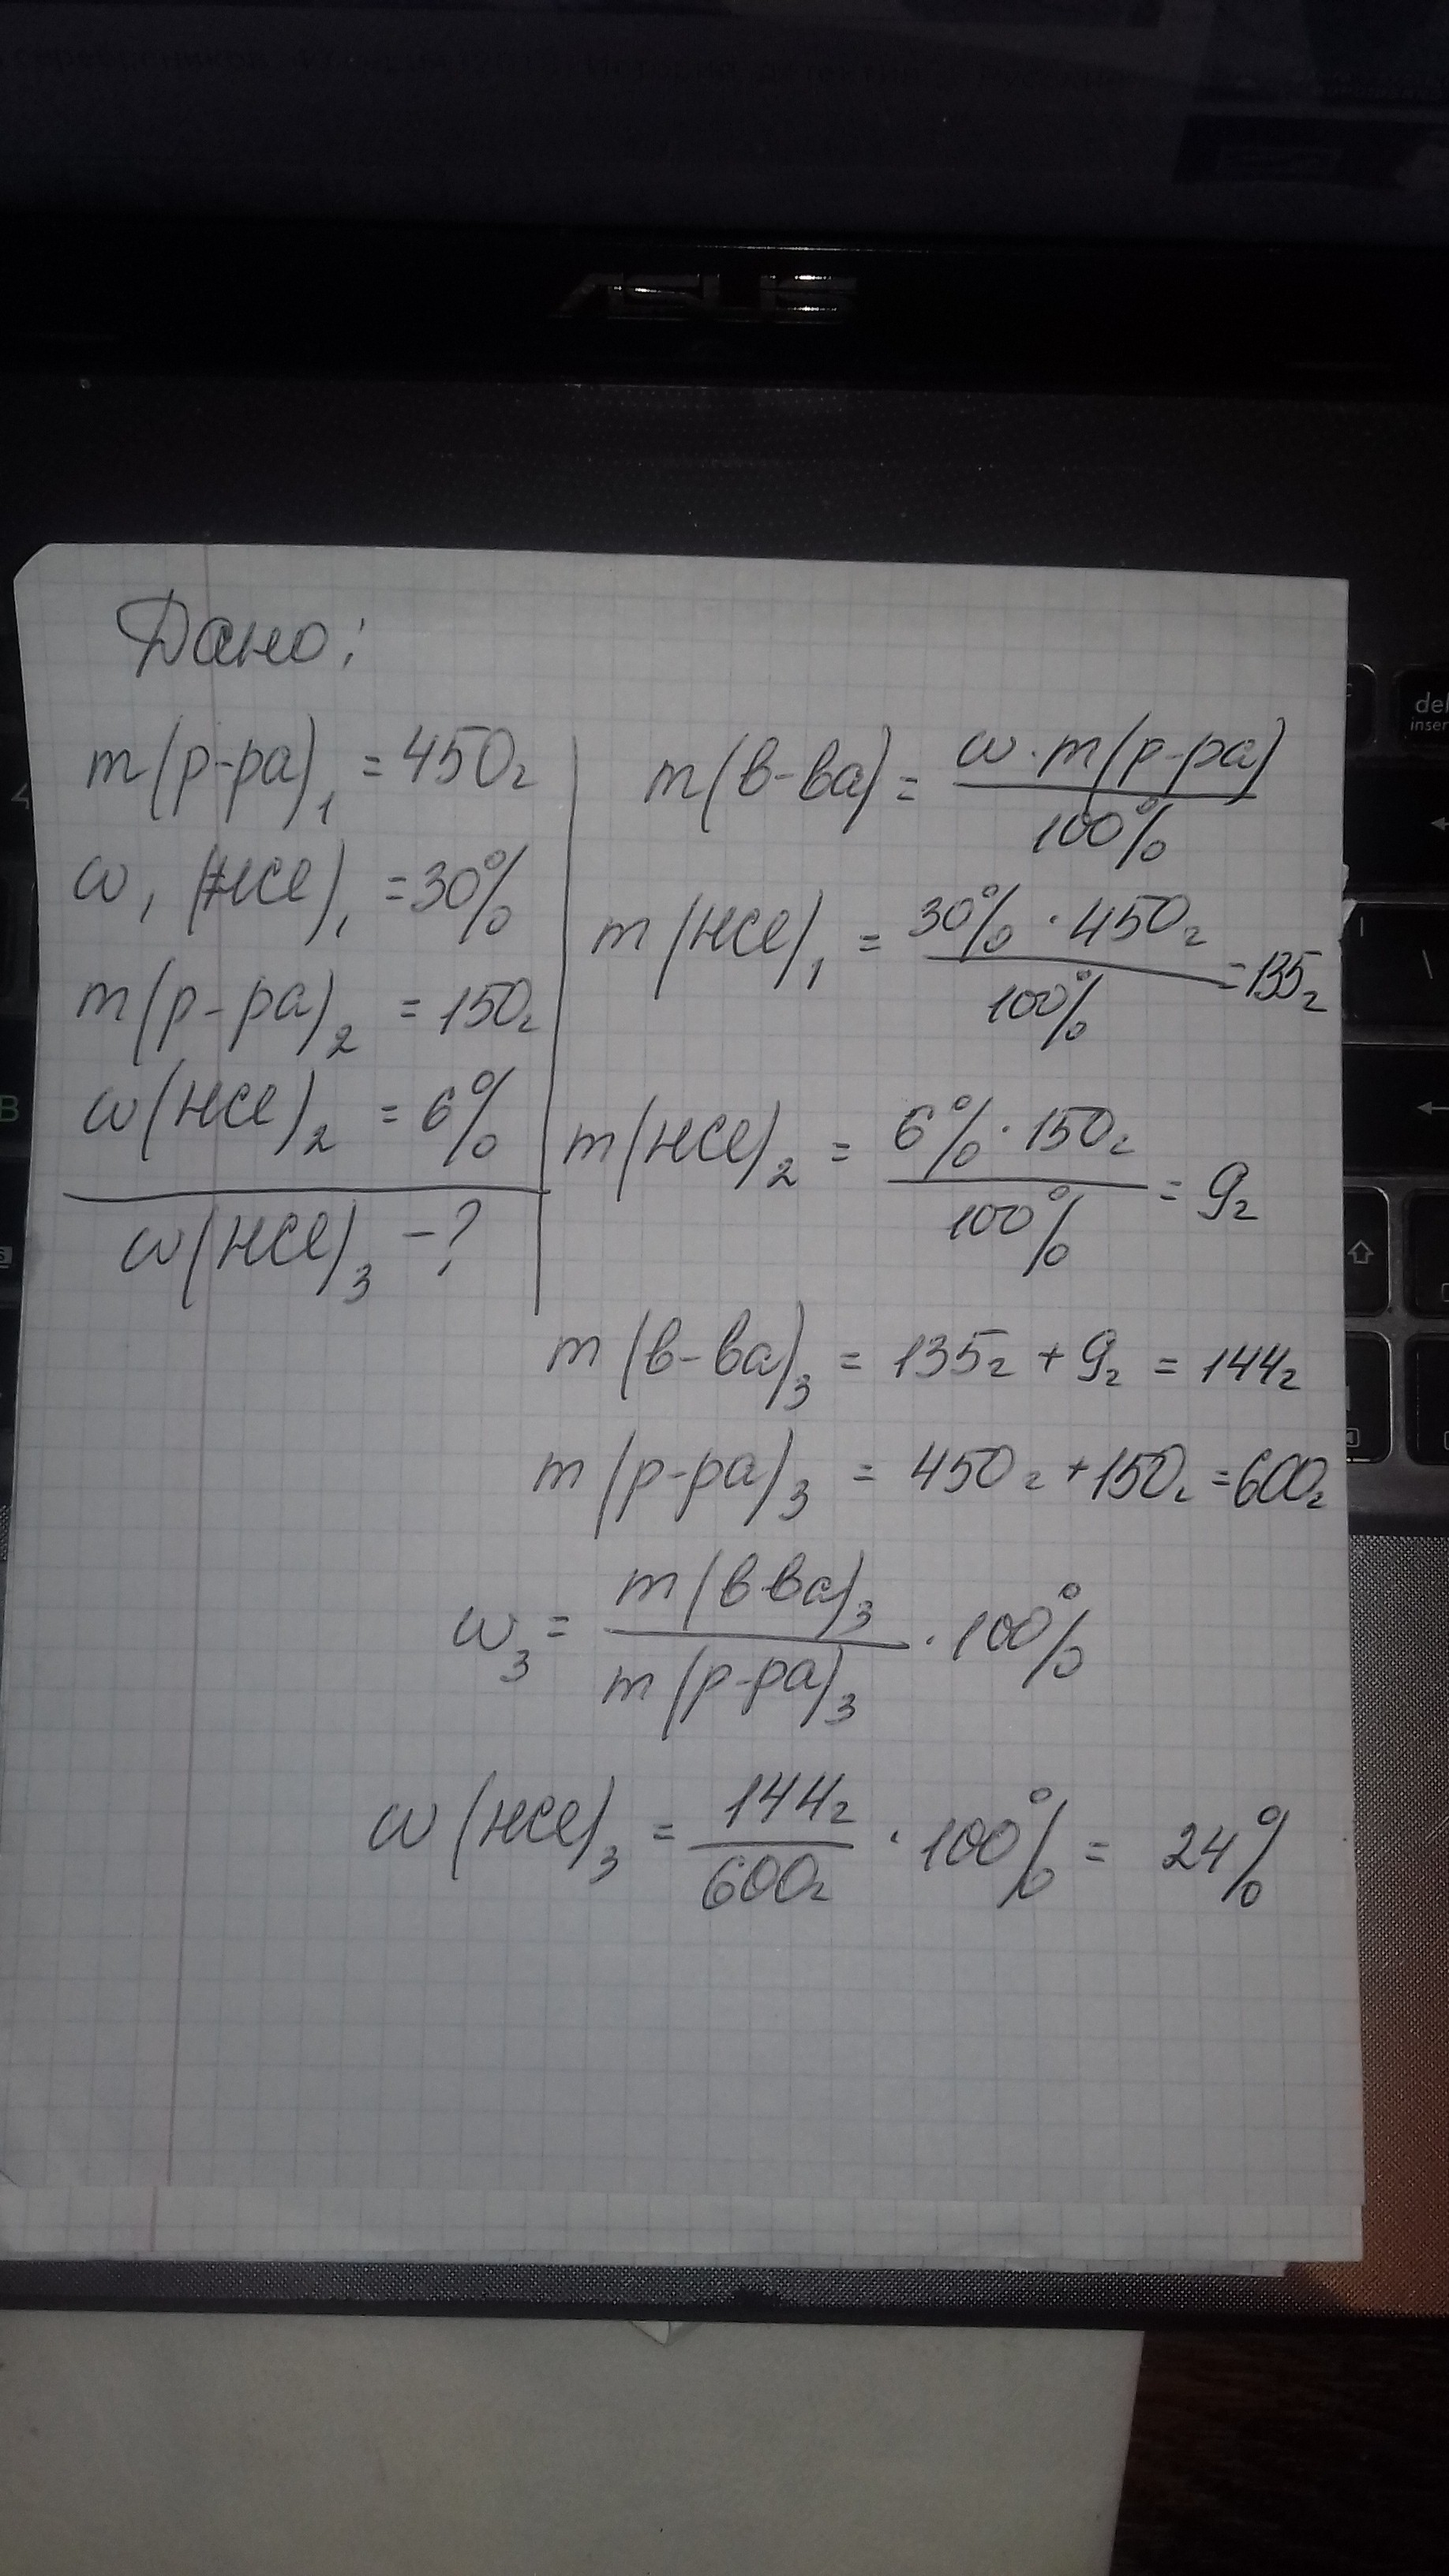 ASUS
Дано:
m(р-ра)₁ = 450г
ω₁ (HCl)₁ = 30%
m(р-ра)₂ = 150г
ω(HCl)₂ = 6%
ω(HCl)₃ - ?
m(в-ва) = ω · m(р-ра) / 100%
m(HCl)₁ = 30% · 450г / 100% = 135г
m(HCl)₂ = 6% · 150г / 100% = 9г
m(в-ва)₃ = 135г + 9г = 144г
m(р-ра)₃ = 450г + 150г = 600г
ω₃ = m(в-ва)₃ / m(р-ра)₃ · 100%
ω(HCl)₃ = 144г / 600г · 100% = 24%
del
B